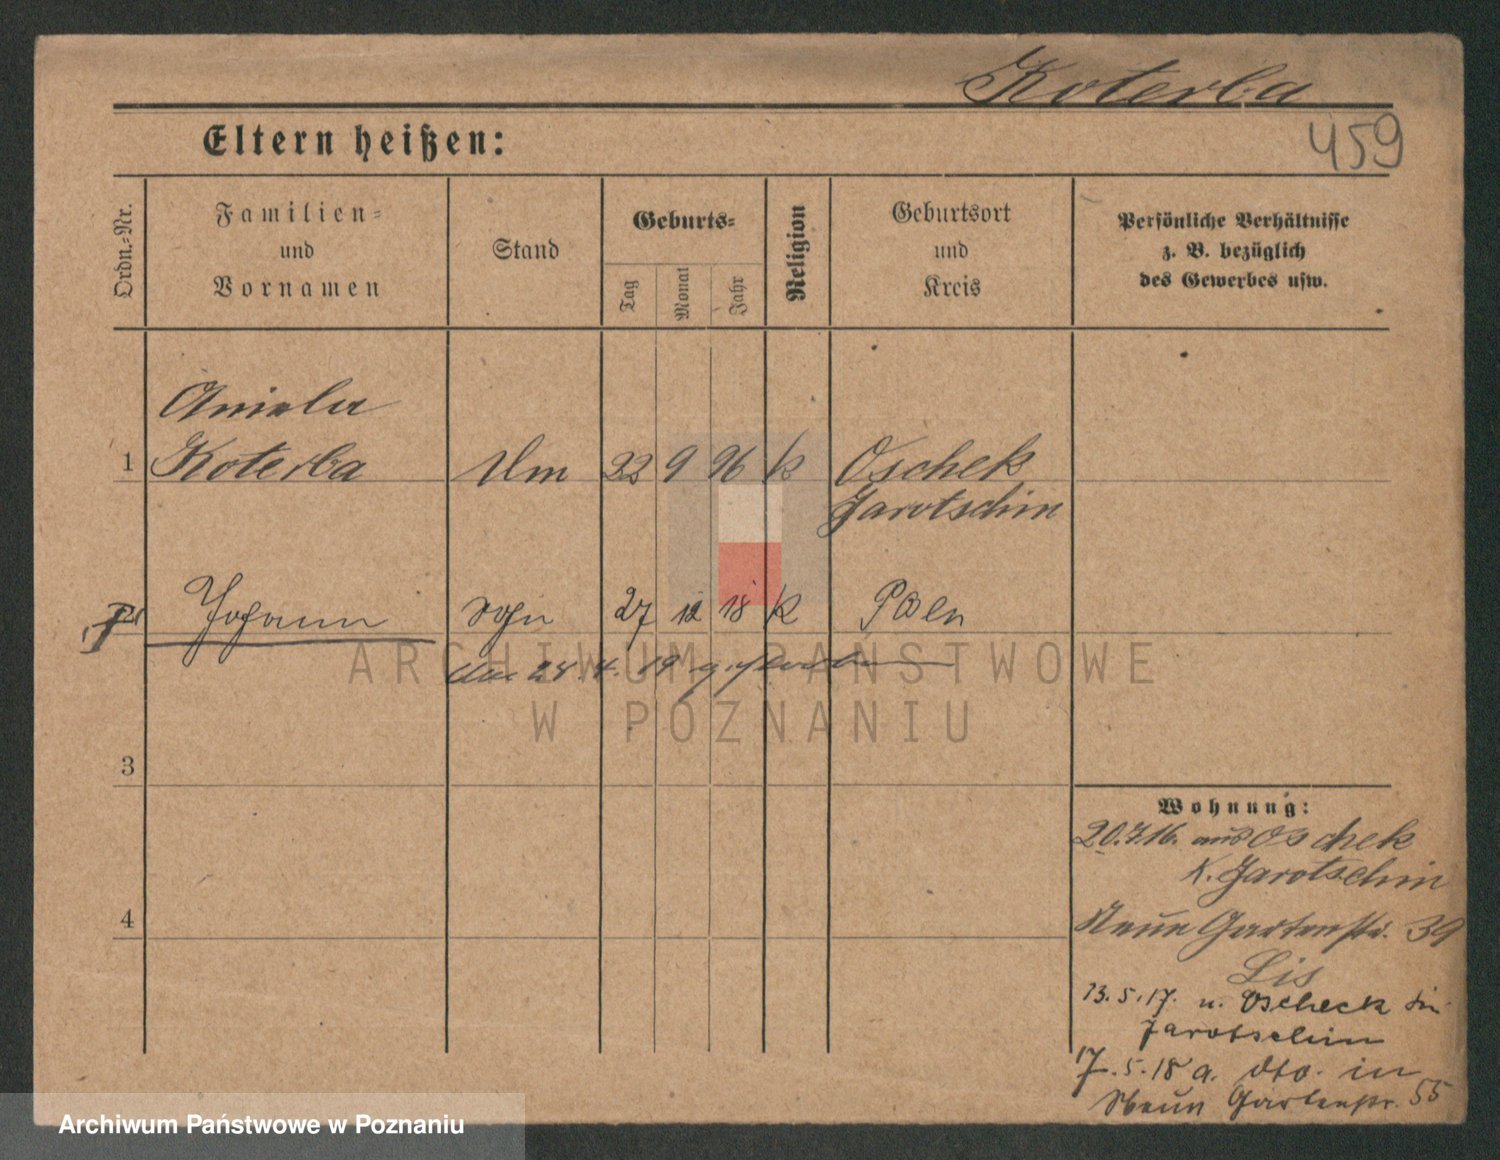 Koterba
459
Eltern heißen:
Ordn.-Nr.
Familien-
und
Vornamen
Stand
Geburts-
Tag
Monat
Jahr
Religion
Geburtsort
und
Kreis
Persönliche Verhältnisse
z. B. bezüglich
des Gewerbes usw.
Aniela
1 Koterba 22 9 96 k Oschek
Jarotschin
Johann Sohn 27 12 18 k Posen
den 28.4.19 gestorben
3
4
Wohnung:
20.7.16. aus Oschek
K. Jarotschin
Neue Gartenstr. 39
Lis
13.5.17. n. Oscheck
Jarotschin
17.5.18 a. dto. in
Neue Gartenstr. 55
ARCHIWUM PAŃSTWOWE
W POZNANIU
Archiwum Państwowe w Poznaniu